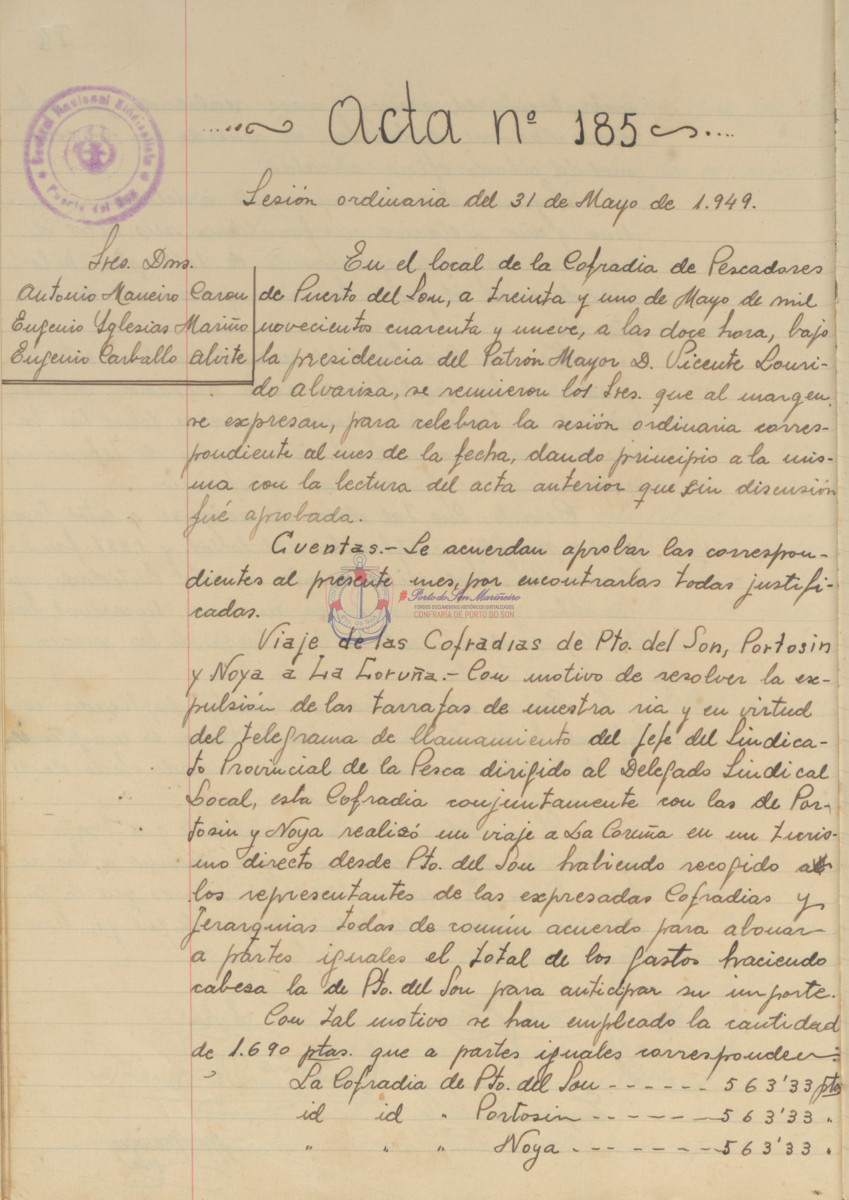 Acta nº 185
Central Nacional Sindicalista
Puerto del Son
Sesión ordinaria del 31 de Mayo de 1.949.
Sres. Dms.
Antonio Maneiro Carou
Eugenio Yglesias Mariño
Eugenio Carballo Alvite
En el local de la Cofradia de Pescadores
de Puerto del Son, a treinta y uno de Mayo de mil
novecientos cuarenta y nueve, a las doce hora, bajo
la presidencia del Patrón Mayor D. Vicente Louri-
do Alvariza, se reunieron los Sres. que al margen
se expresan, para celebrar la sesión ordinaria corres-
pondiente al mes de la fecha, dando principio a la mis-
ma con la lectura del acta anterior que sin discusión
fué aprobada.
Cuentas.- Se acuerdan aprobar las correspon-
dientes al presente mes, por encontrarlas todas justifi-
cadas.
Porto do Son Mariñeiro
FONDOS DOCUMENTAIS HISTÓRICOS DIXITALIZADOS
CONFRARÍA DE PORTO DO SON
Viaje de las Cofradias de Pto. del Son, Portosin
y Noya a La Coruña.- Con motivo de resolver la ex-
pulsión de las tarrafas de nuestra ria y en virtud
del telegrama de llamamiento del Jefe del Sindica-
to Provincial de la Pesca dirigido al Delegado Sindical
Local, esta Cofradia conjuntamente con las de Por-
tosin y Noya realizó un viaje a La Coruña en un turis-
mo directo desde Pto. del Son habiendo recogido a
los representantes de las expresadas Cofradias y
Jerarquias todas de común acuerdo para abonar
a partes iguales el total de los gastos haciendo
cabesa la de Pto. del Son para anticipar su importe.
Con tal motivo se han empleado la cantidad
de 1.690 ptas. que a partes iguales corresponden:
La Cofradia de Pto. del Son ------ 563'33 ptas
id id " Portosin ------ 563'33 "
" " " Noya ------- 563'33 "